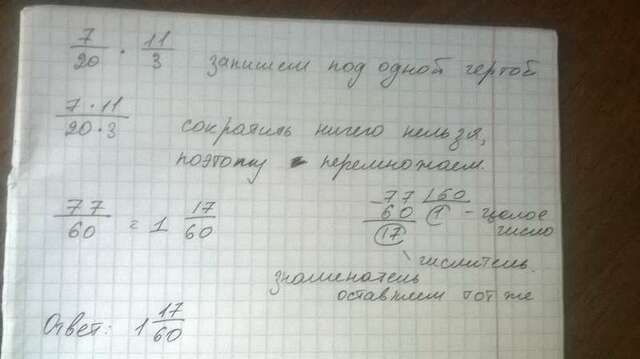 7/20 · 11/3 запишем под одной чертой
7·11/20·3 сократить ничего нельзя,
поэтому перемножаем.
77/60 = 1 17/60
77 | 60
60 1 - целое
17 число
числитель.
знаменатель
оставляем тот же
Ответ: 1 17/60